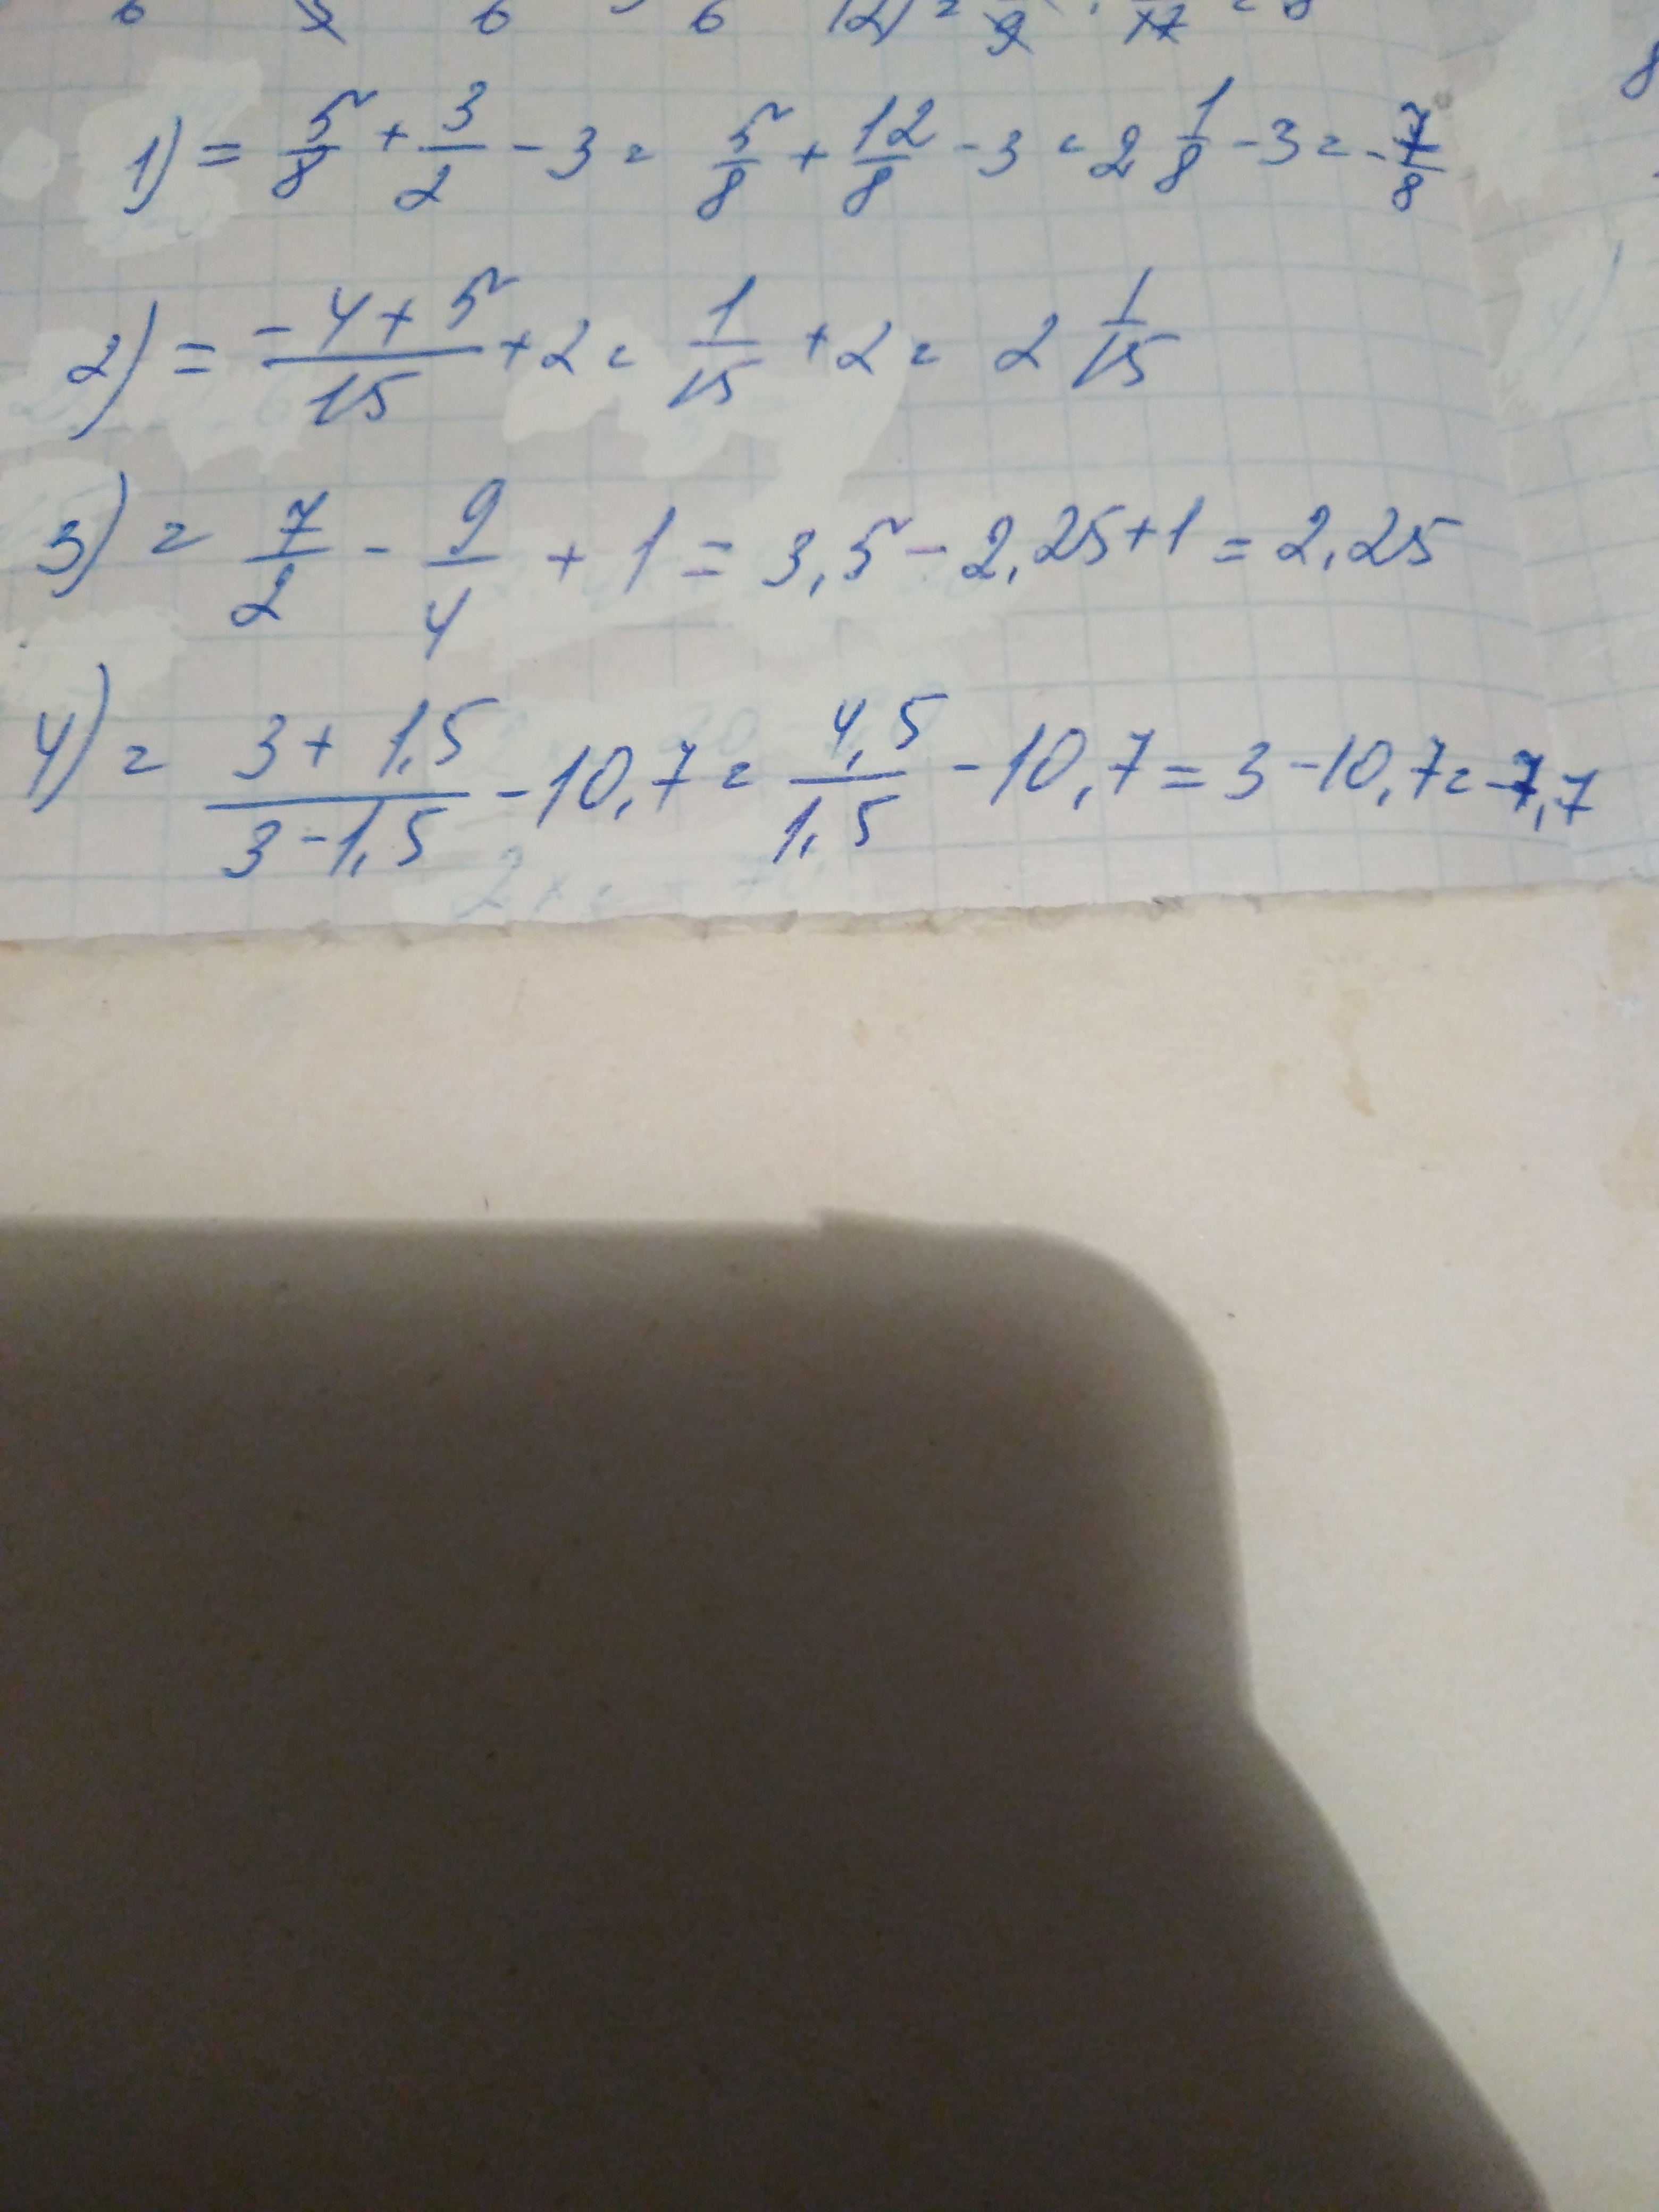 12) =
1) = 5/8 + 3/2 - 3 = 5/8 + 12/8 - 3 = 2 1/8 - 3 = - 7/8
2) = -4+5/15 + 2 = 1/15 + 2 = 2 1/15
3) = 7/2 - 9/4 + 1 = 3,5 - 2,25 + 1 = 2,25
4) = 3 + 1,5/3 - 1,5 - 10,7 = 4,5/1,5 - 10,7 = 3 - 10,7 = -7,7